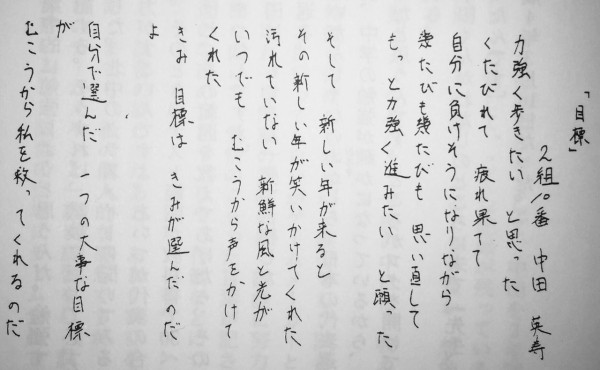 「目標」
2組10番 中田 英寿
力強く歩きたい と思った
くたびれて 疲れ果てて
自分に負けそうになりながら
幾たびも幾たびも 思い直して
もっと力強く進みたい と願った
そして 新しい年が来ると
その新しい年が笑いかけてくれた
汚れていない 新鮮な風と光が
いつでも むこうから声をかけて
くれた
きみ 目標は きみが選んだ のだ
よ
自分で選んだ 一つの大事な目標
が
むこうから私を救ってくれるのだ